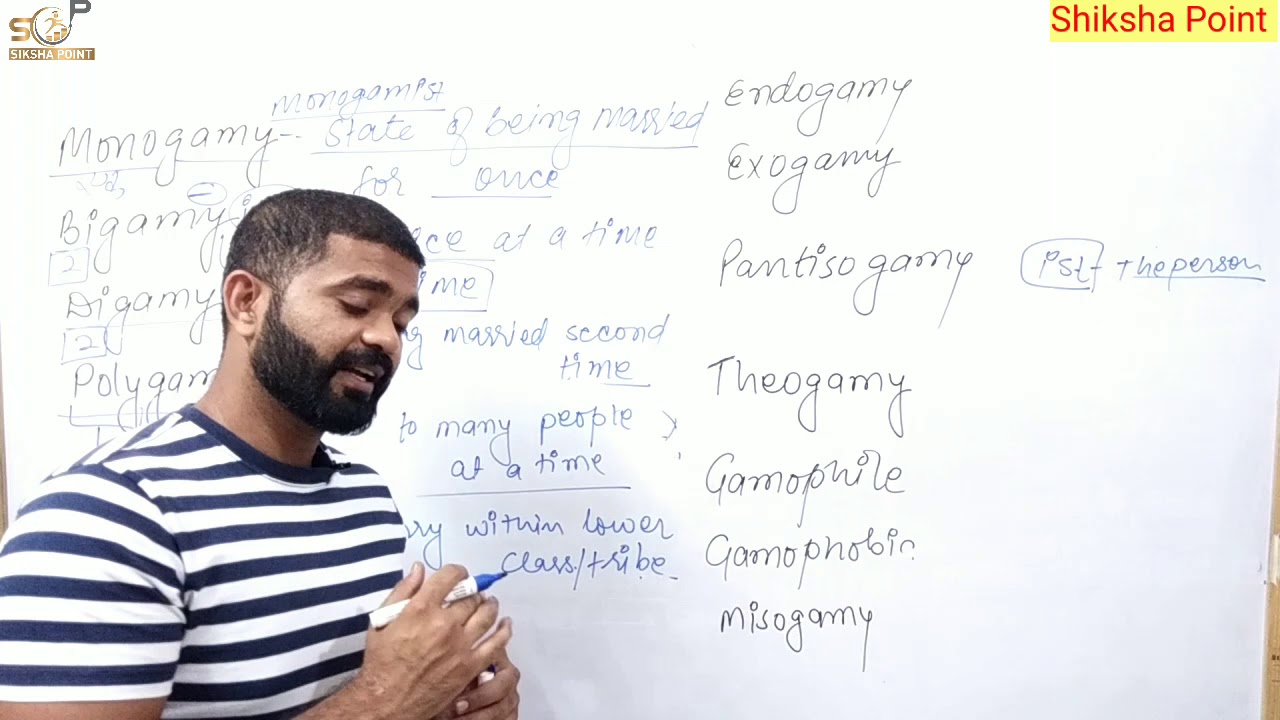 SOP
SIKSHA POINT
Shiksha Point
Monogamist
Monogamy - State of being married
for once
Bigamy
2
at a time
Digamy
2
married second
time
Polygam
to many people
at a time
within lower
class/tribe
Endogamy
Exogamy
Pantisogamy
ist + the person
Theogamy
Gamophile
Gamophobia
Misogamy